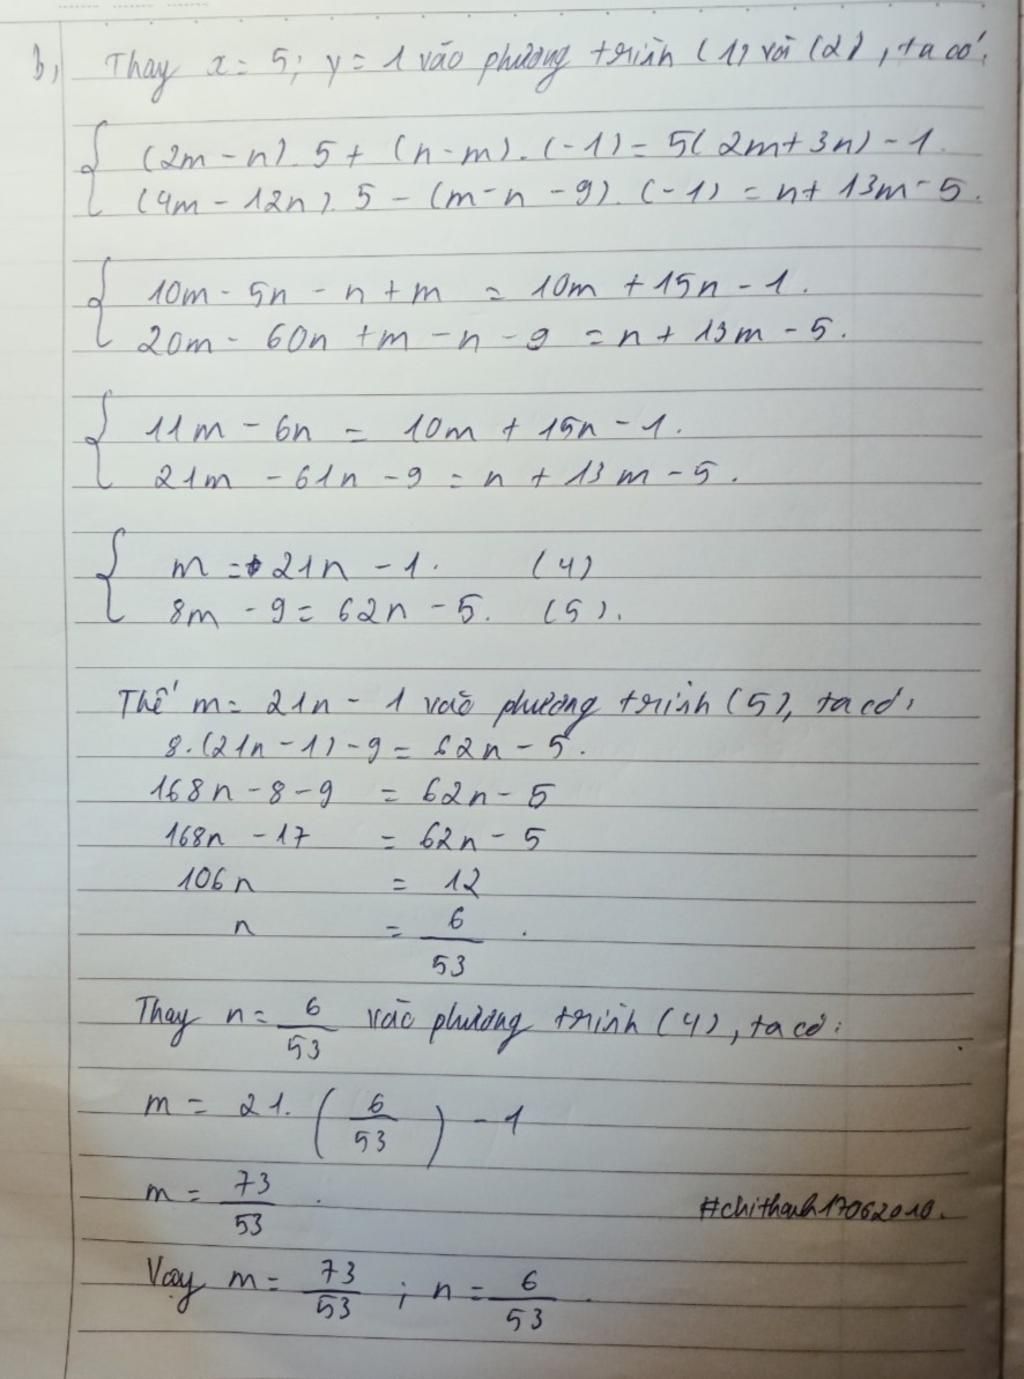 b, Thay x = 5; y = 1 vào phương trình (1) và (2), ta có:
(2m - n). 5 + (n - m). (-1) = 5(2m + 3n) - 1.
(4m - 12n). 5 - (m - n - 9). (-1) = n + 13m - 5.
10m - 5n - n + m = 10m + 15n - 1.
20m - 60n + m - n - 9 = n + 13m - 5.
11m - 6n = 10m + 15n - 1.
21m - 61n - 9 = n + 13m - 5.
m = 21n - 1. (4)
8m - 9 = 62n - 5. (5).
Thế m = 21n - 1 vào phương trình (5), ta có:
8.(21n - 1) - 9 = 62n - 5.
168n - 8 - 9 = 62n - 5
168n - 17 = 62n - 5
106n = 12
n = 6/53.
Thay n = 6/53 vào phương trình (4), ta có:
m = 21. (6/53) - 1
m = 73/53.
#chithanh17062010.
Vậy m = 73/53; n = 6/53.